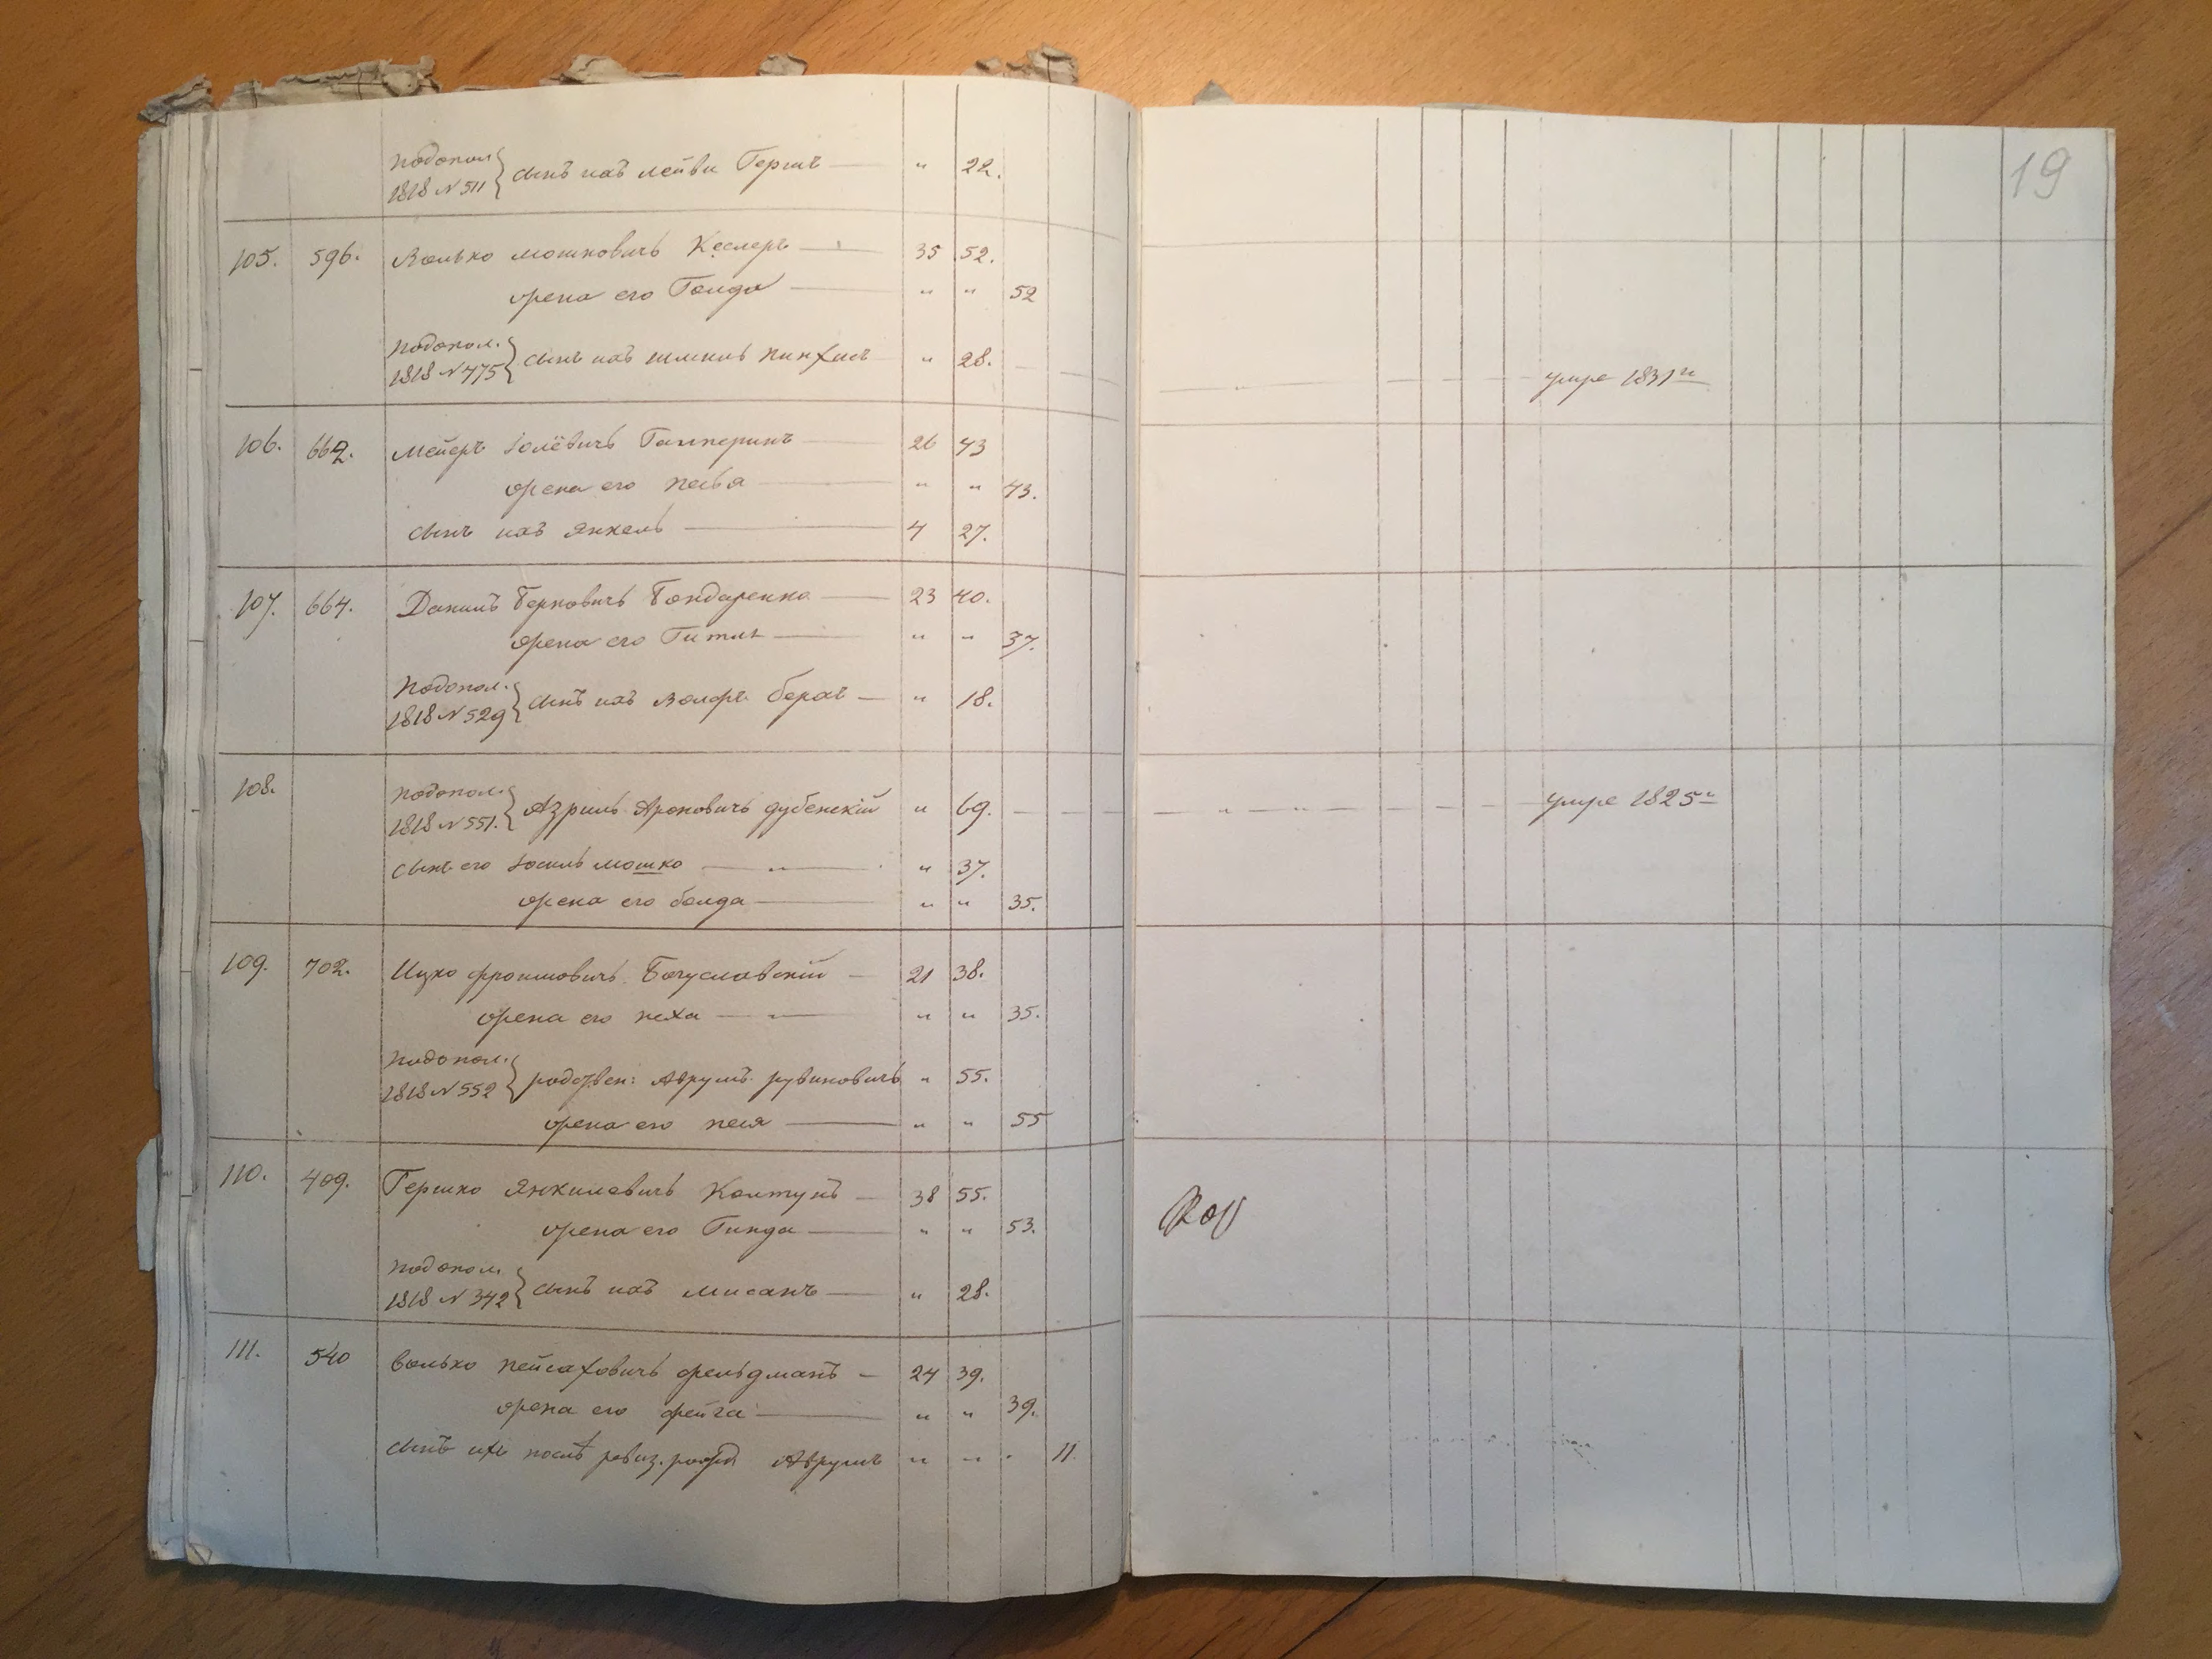 19
Подопол
1818 № 511 } сынъ изъ Лейви Гершъ — " 22.
105. 596. Волько Мошковичъ Кеслеръ — 35 52.
жена его Голда — " " 52
Подопол.
1818 № 475 } сынъ изъ Шмиль Пинхасъ " 28. — — — умре 1831 г.
106. 662. Мейеръ Іолёвичъ Галперинъ — 26 43
жена его Песья — " " 43.
сынъ изъ Янкель — 4 27.
107. 664. Данилъ Берковичъ Бондаренко — 23 40.
жена его Гитля — " " 37.
Подопол.
1818 № 529 } сынъ изъ Волфъ Беръ — " 18.
108. Подопол.
1818 № 551. } Азриль Ароновичъ Дубенскій " 69. — — — умре 1825 г.
сынъ его Іосиль Мошко — " — " 37.
жена его — " " 35.
109. 702. Ицко Фроимовичъ Богуславскій — 21 38.
жена его — " — " " 35.
Подопол.
1818 № 552 } родствен: Аврумъ Рувиновичъ " 55.
жена его Песя — " " 55
110. 409. Гершко Янкилевичъ Колтунъ — 38 55.
жена его Гинда — " " 53.
Подопол.
1818 № 342 } сынъ изъ — " 28.
111. 540 Волько Пейсаховичъ Фельдманъ — 24 39.
жена его Фейга — " " 39.
сынъ ихъ послѣ ревиз. рожд Аврумъ " " " 11